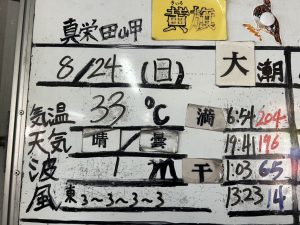 真栄田岬
黄旗
8/24(日) 大潮
気温 33℃ 満 6:54 204
天気 晴/曇 19:41 196
波 1m 干 1:03 65
風 東3~3~3~3 13:23 14